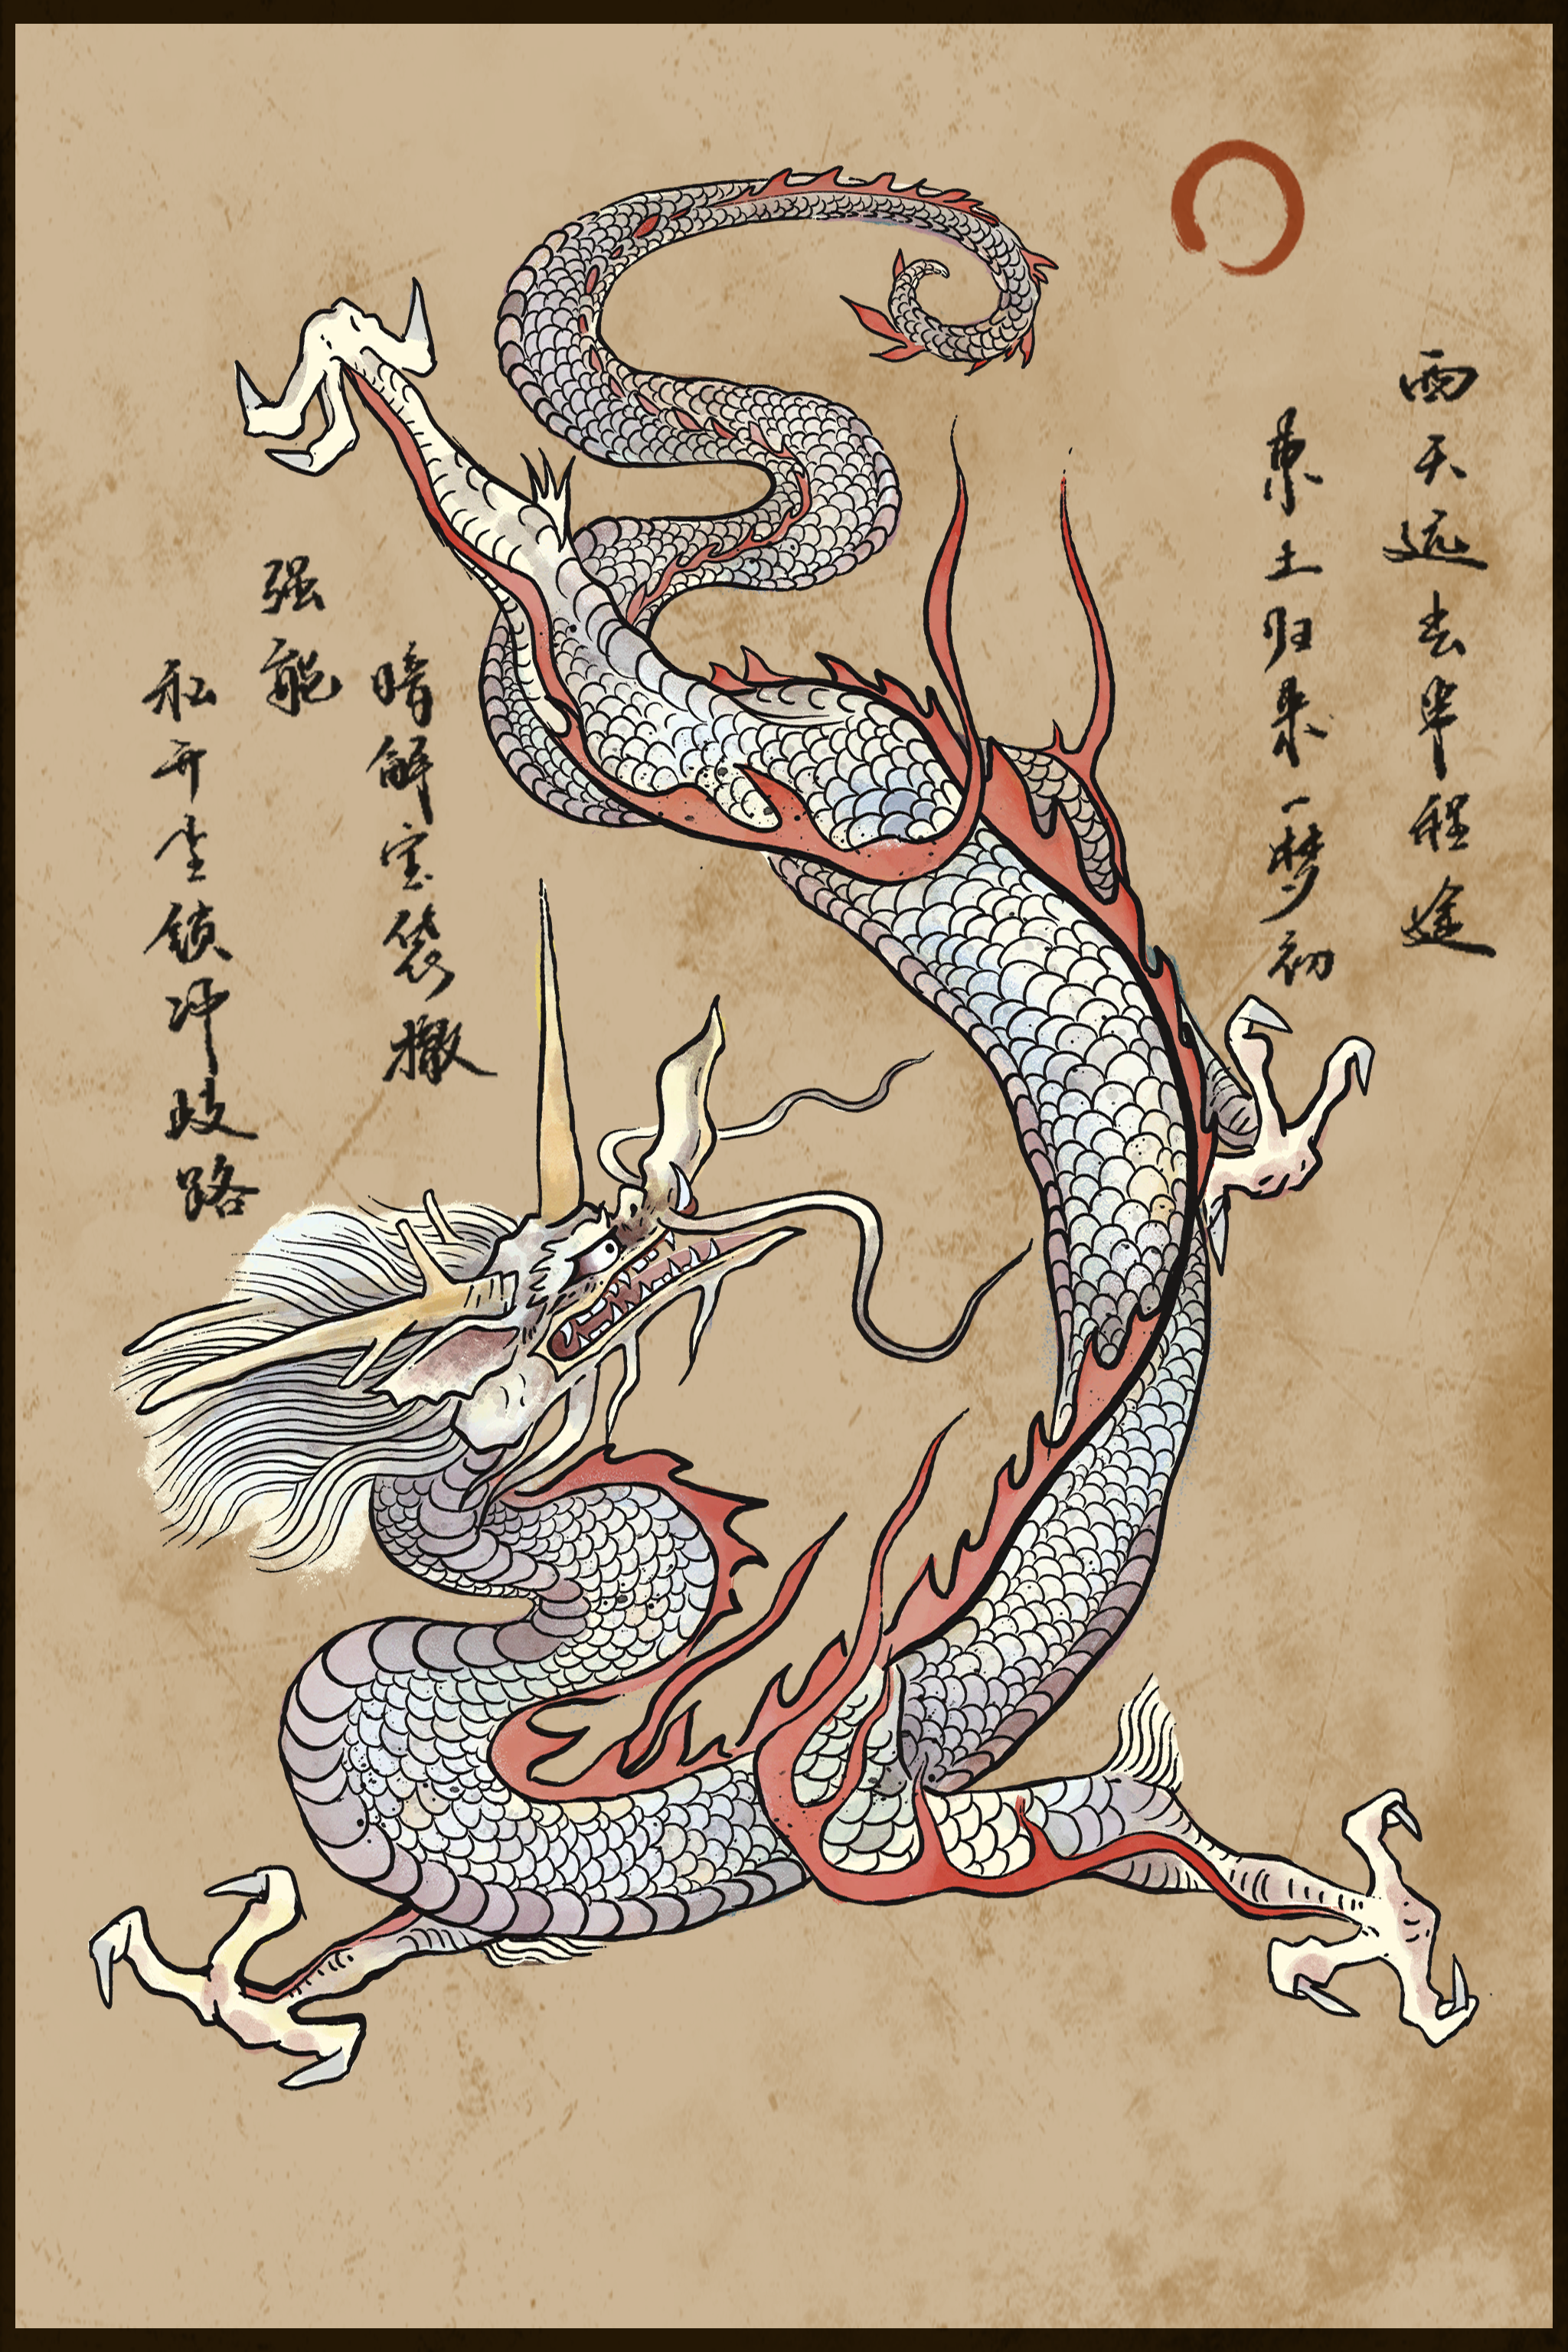 西天远去半程途
東土归来一梦初
暗解宝袋撒
强能
私开尘锁冲歧路